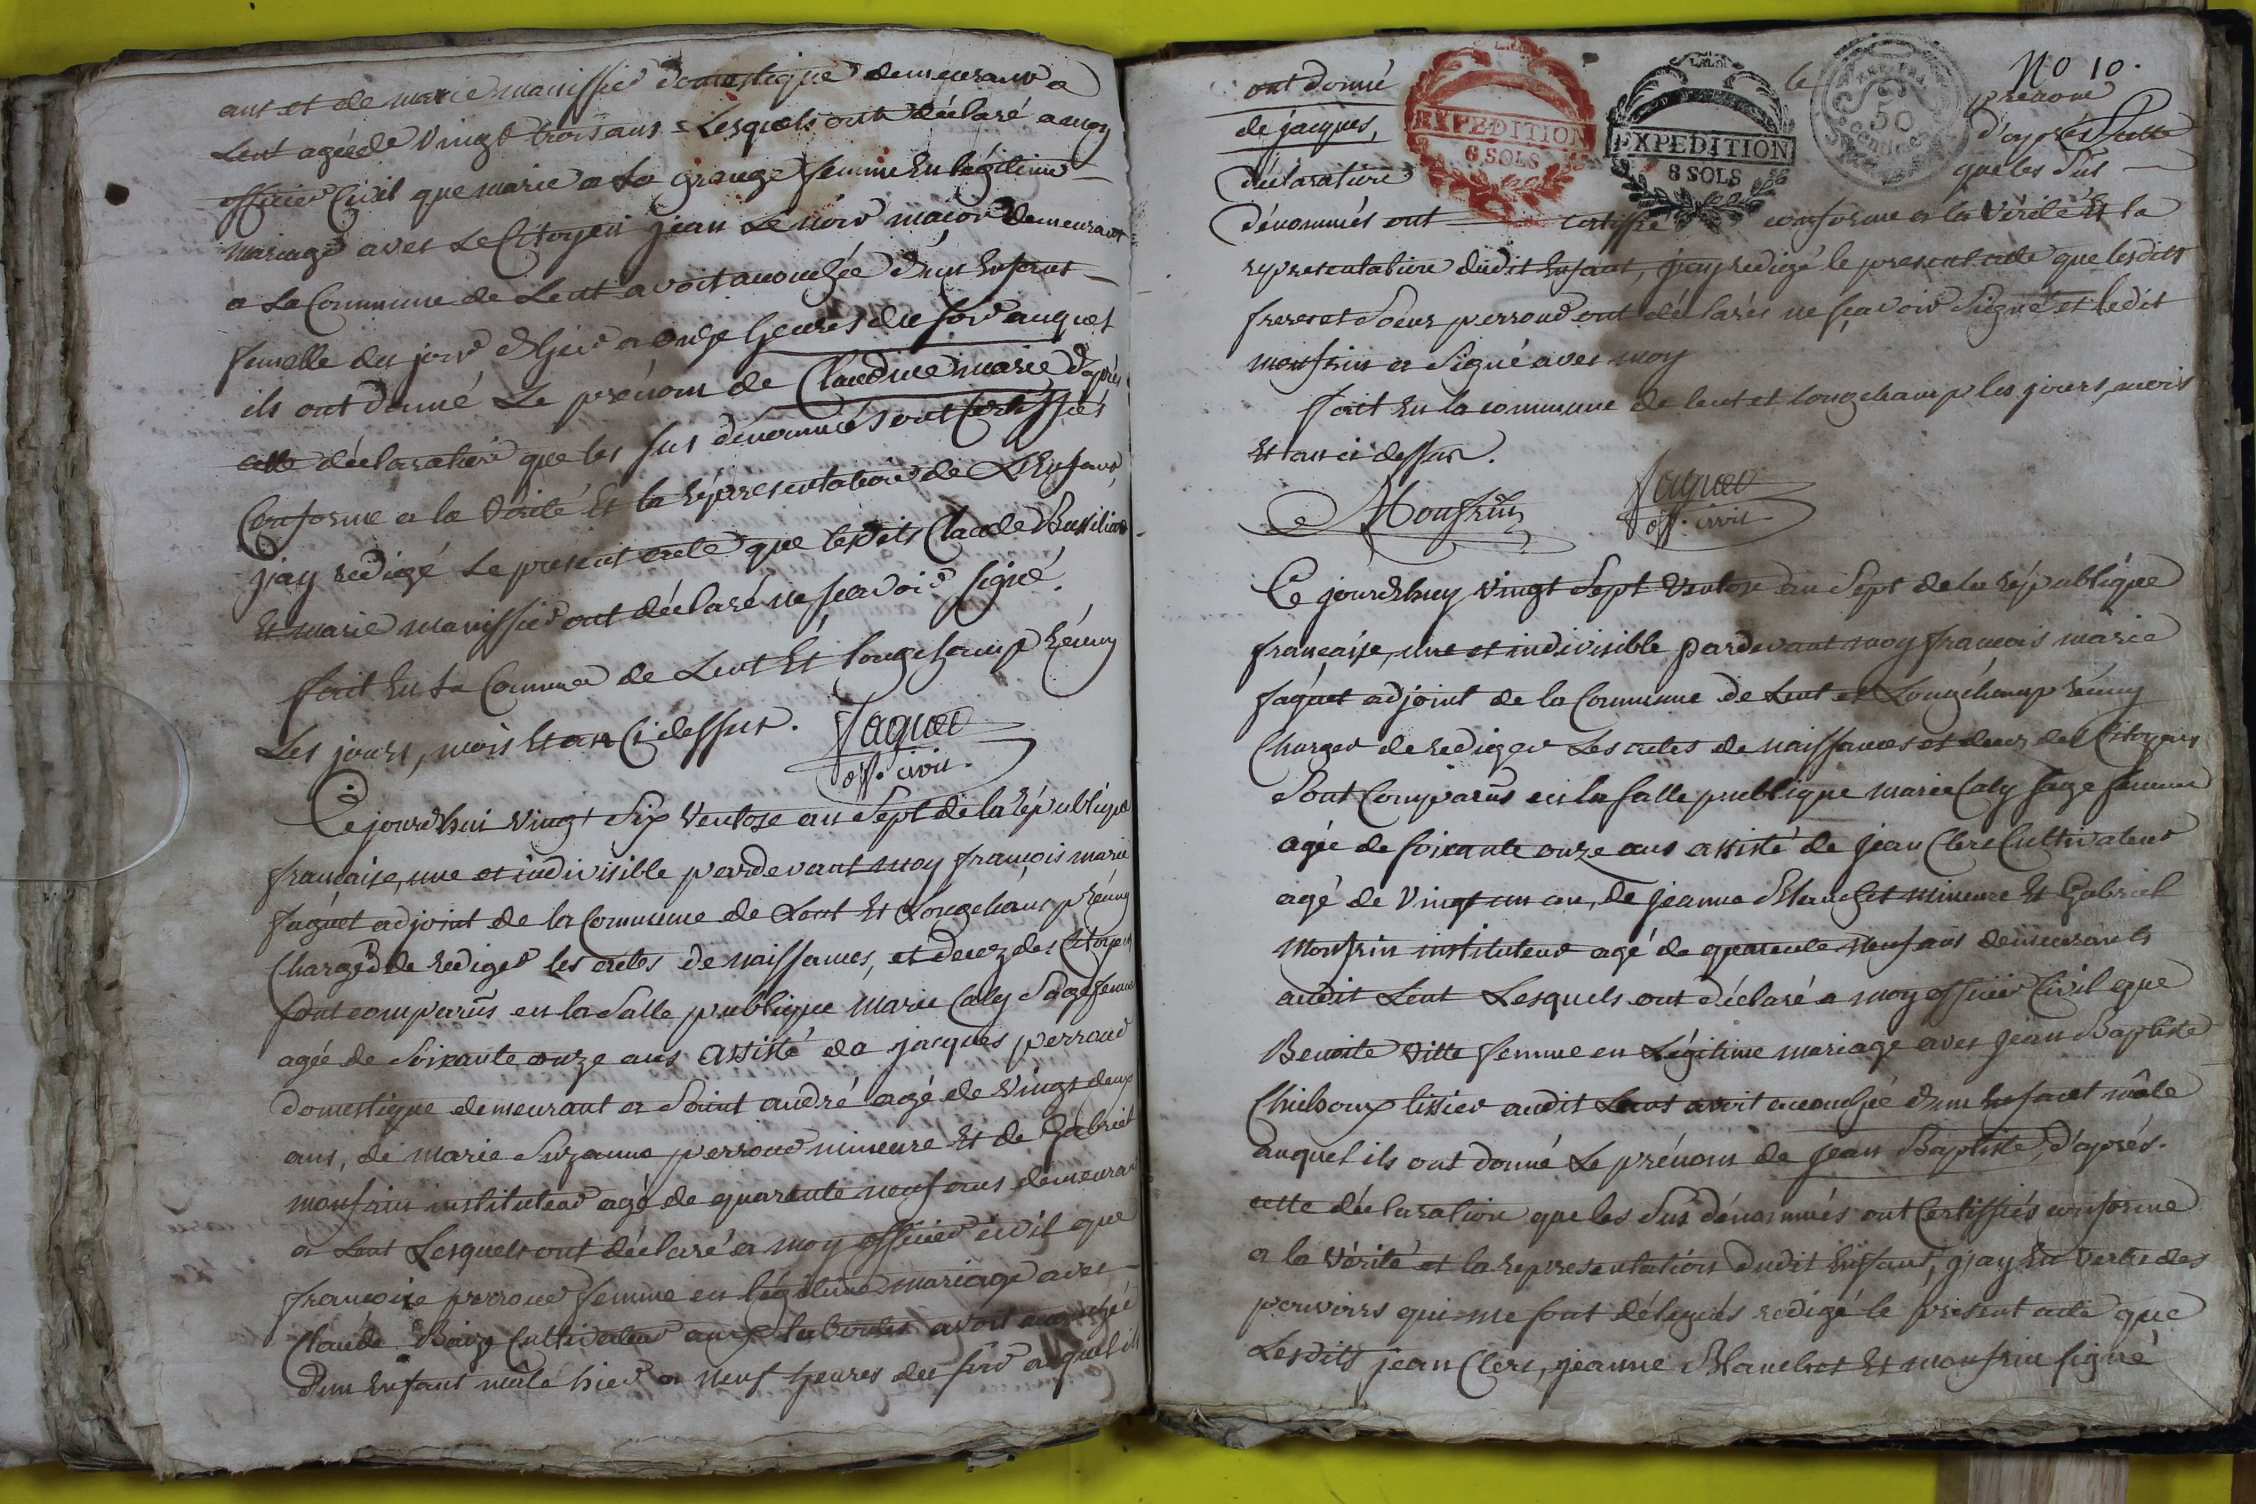 ans et de marie manissier domestique demeurant a
Lent agée de vingt trois ans = Lesquels ont déclaré a moy
officier Civil que marie a La grange femme En légitime
mariage avec Le Citoyen jean Lenoir maçon demeurant
a La Commune de Lent avoit acouchée d'un Enfant
femelle du jour d'hier a onze heures du soir auquel
ils ont donné Le prénom de Claudine marie d'après
cette déclaration que les sus dénommés ont Certiffiés
Conforme a la vérité Et la répresentation de L'Enfant
j'ay redigé Le present acte que lesdits Claude
Et marie manissier ont déclaré ne scavoir signé.
fait En La Commune de Lent Et Longchamp Réuny
Les jours, mois Et an Ci dessus. Faguet
off. civil.
Ce jourdhui vingt Six ventose an Sept de la République
francaise, une et indivisible pardevant moy françois marie
faguet adjoint de la Commune de Lent Et Longchamp Réuny
Chargéd de rediger les actes de naissances, et decez des Citoyens
sont comparus en la Salle publique Marie Caly Sage femme
agée de Soixante onze ans assisté de jacques perroud
domestique demeurant a Saint andré agé de vingt deux
ans, de marie Suzanne perroud mineure Et de Gabriel
monfrin instituteur agé de quarante neuf ans demeurant
a Lent Lesquels ont déclaré a moy officier civil que
francoise perroud femme en légitime mariage avec
Claude Cultivateur aux avoit acouchée
d'un Enfant mâle hier a neuf heures du soir auquel ils
No 10.
ont donné le prenom
de jacques, d'après Cette
déclaration que les Sus
EXPEDITION
6 SOLS
EXPEDITION
8 SOLS
50
centimes
dénommés ont certiffié conforme a la vérité Et la
representation dudit Enfant, j'ay redigé le present acte que lesdits
freres et Soeur perroud ont déclarés ne sçavoir Signé et ledit
monfrin a Signé avec moy
fait En la commune de lent et longchamp les jours, mois
Et an ci dessus.
Monfrin Faguet
off. civil
Ce jourdhuy vingt Sept ventose an Sept de la République
française, une et indivisible pardevant moy francois marie
faguet adjoint de la Commune de Lent et Longchamp Réuny
Charger de rediger Les actes de naissances et decez des Citoyens
Sont Comparus en la salle publique marie Caly sage femme
agée de soixante onze ans assisté de jean Clerc Cultivateur
agé de vingt un an, de jeanne Blanchet mineure Et Gabriel
Monfrin instituteur agé de quarante neuf ans demeurants
audit Lent Lesquels ont déclaré a moy officier Civil que
Benoite vitte femme en Légitime mariage avec jean Baptiste
tissier audit Lent avoit acouchée d'un Enfant mâle
auquel ils ont donné Le prénom de jean Baptiste, d'après.
cette déclaration que les Sus dénommés ont Certiffiés conforme
a la vérité et la representation dudit Enfant, j'ay En vertu des
pouvoirs qui me sont délegués redigé le present acte que
Lesdits jean Clerc, jeanne Blanchet Et monfrin signé